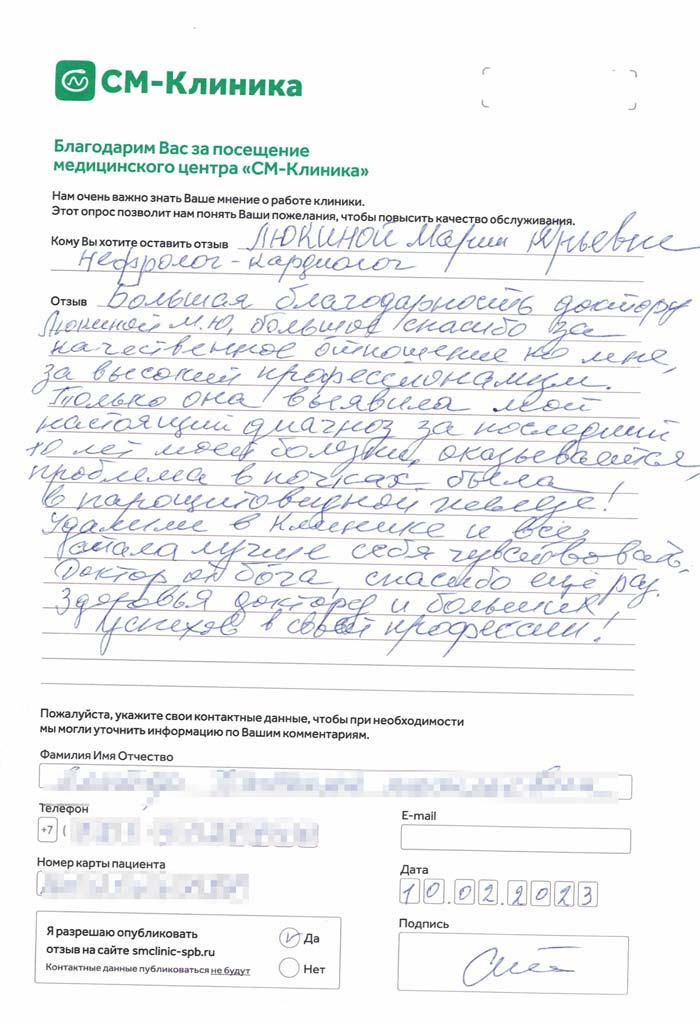 СМ-Клиника
Благодарим Вас за посещение
медицинского центра «СМ-Клиника»
Нам очень важно знать Ваше мнение о работе клиники.
Этот опрос позволит нам понять Ваши пожелания, чтобы повысить качество обслуживания.
Кому Вы хотите оставить отзыв Люкиной Марии Юрьевне
Нефролог-кардиолог
Отзыв Большая благодарность доктору
Люкиной М.Ю, большое спасибо за
качественное отношение ко мне,
за высокий профессионализм.
Только она выявила мой
настоящий диагноз за последний
10 лет моей болезни, оказывается,
проблема в почках была
в паращитовидной железе!
Удалили в клинике и все,
стала лучше себя чувствовать.
Доктор от бога, спасибо ещё раз.
Здоровья доктору и больших
успехов в своей профессии!
Пожалуйста, укажите свои контактные данные, чтобы при необходимости
мы могли уточнить информацию по Вашим комментариям.
Фамилия Имя Отчество
Телефон
+7 (
E-mail
Номер карты пациента
Дата
10.02.2023
Я разрешаю опубликовать
отзыв на сайте smclinic-spb.ru
Контактные данные публиковаться не будут
Да
Нет
Подпись